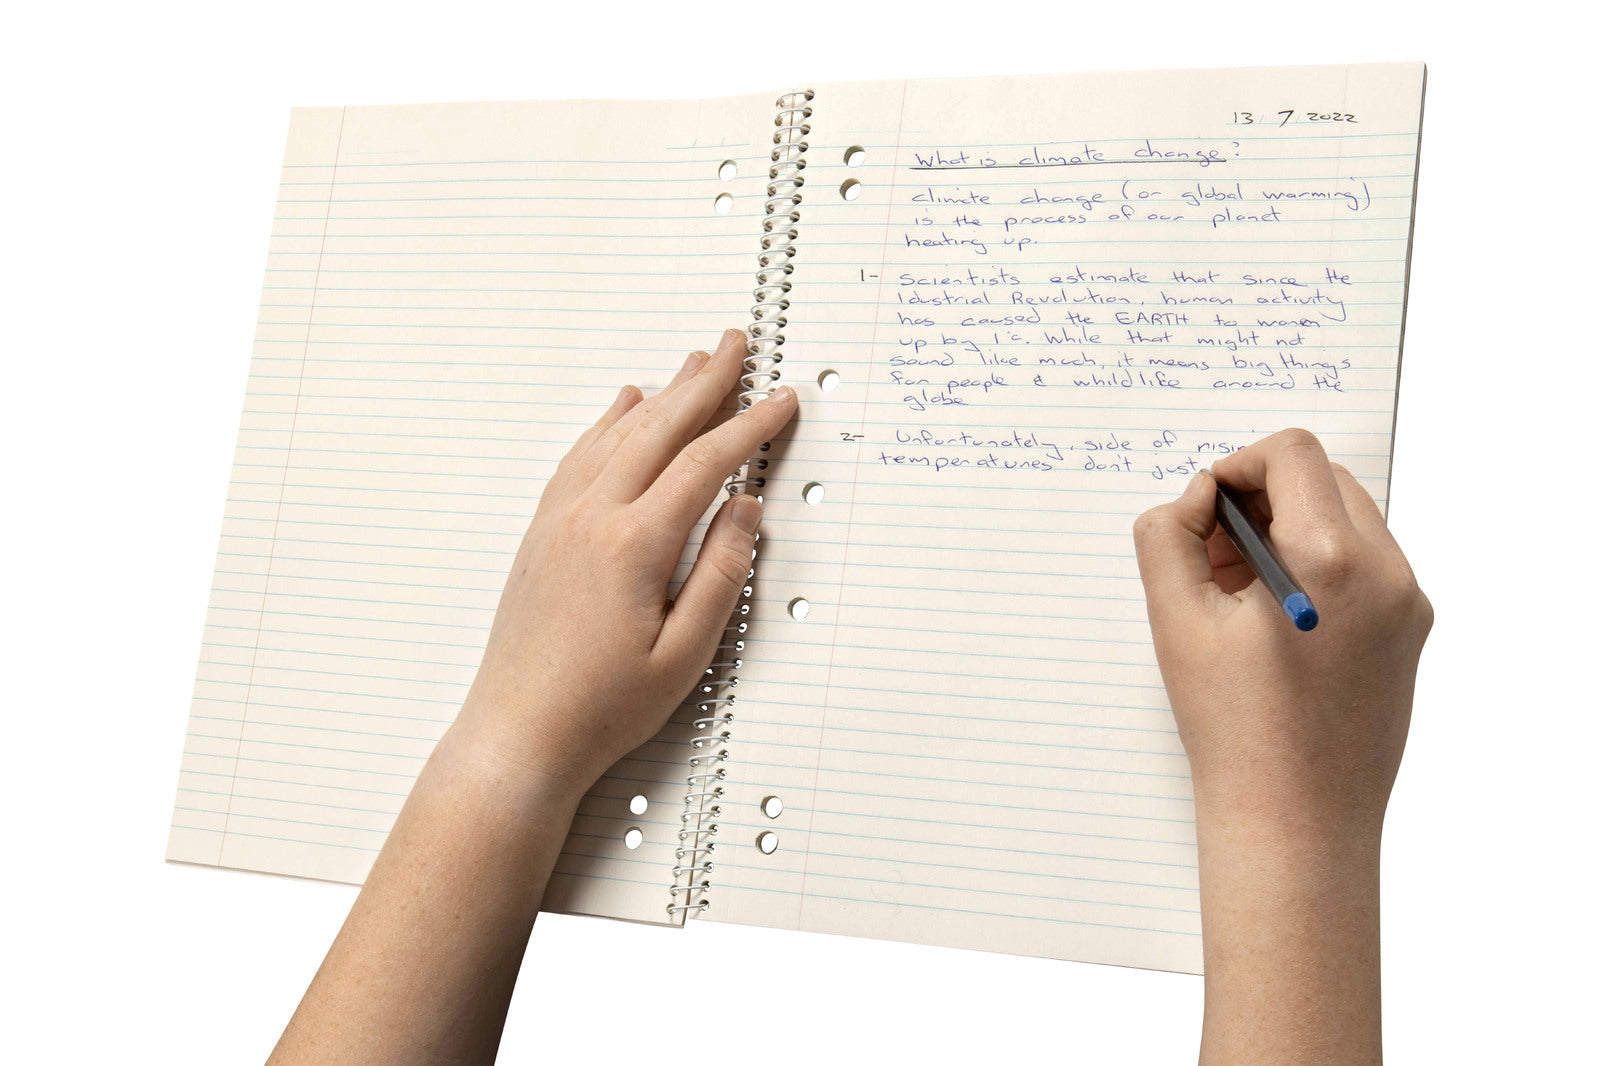 13 7 2022
What is climate change?
climate change (or global warming)
is the process of our planet
heating up.
1- Scientists estimate that since the
Idustrial Revolution, human activity
has caused the EARTH to
up by 1°c. While that might not
sound like much, it means big things
for people & whildlife around the
globe
2- Unfortunately, side of risi
temperatures don't just